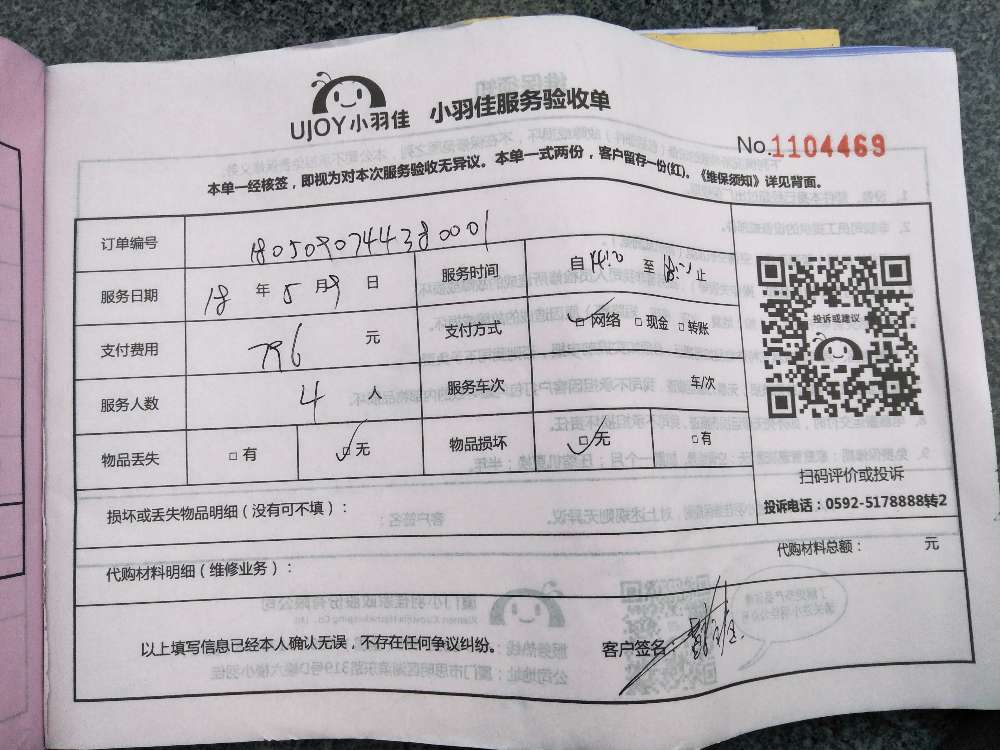 UJOY小羽佳 小羽佳服务验收单
No.1104469
本单一经核签，即视为对本次服务验收无异议。本单一式两份，客户留存一份(红)。《维保须知》详见背面。
订单编号 1805090744380001
服务日期 18 年 5 月 9 日 服务时间 自 至 止
支付费用 796 元 支付方式 ☑网络 □现金 □转账
服务人数 4 人 服务车次 车/次
物品丢失 □有 ☑无 物品损坏 ☑无 □有
投诉或建议
扫码评价或投诉
投诉电话：0592-5178888转2
损坏或丢失物品明细（没有可不填）：
代购材料明细（维修业务）： 代购材料总额： 元
以上填写信息已经本人确认无误，不存在任何争议纠纷。 客户签名：